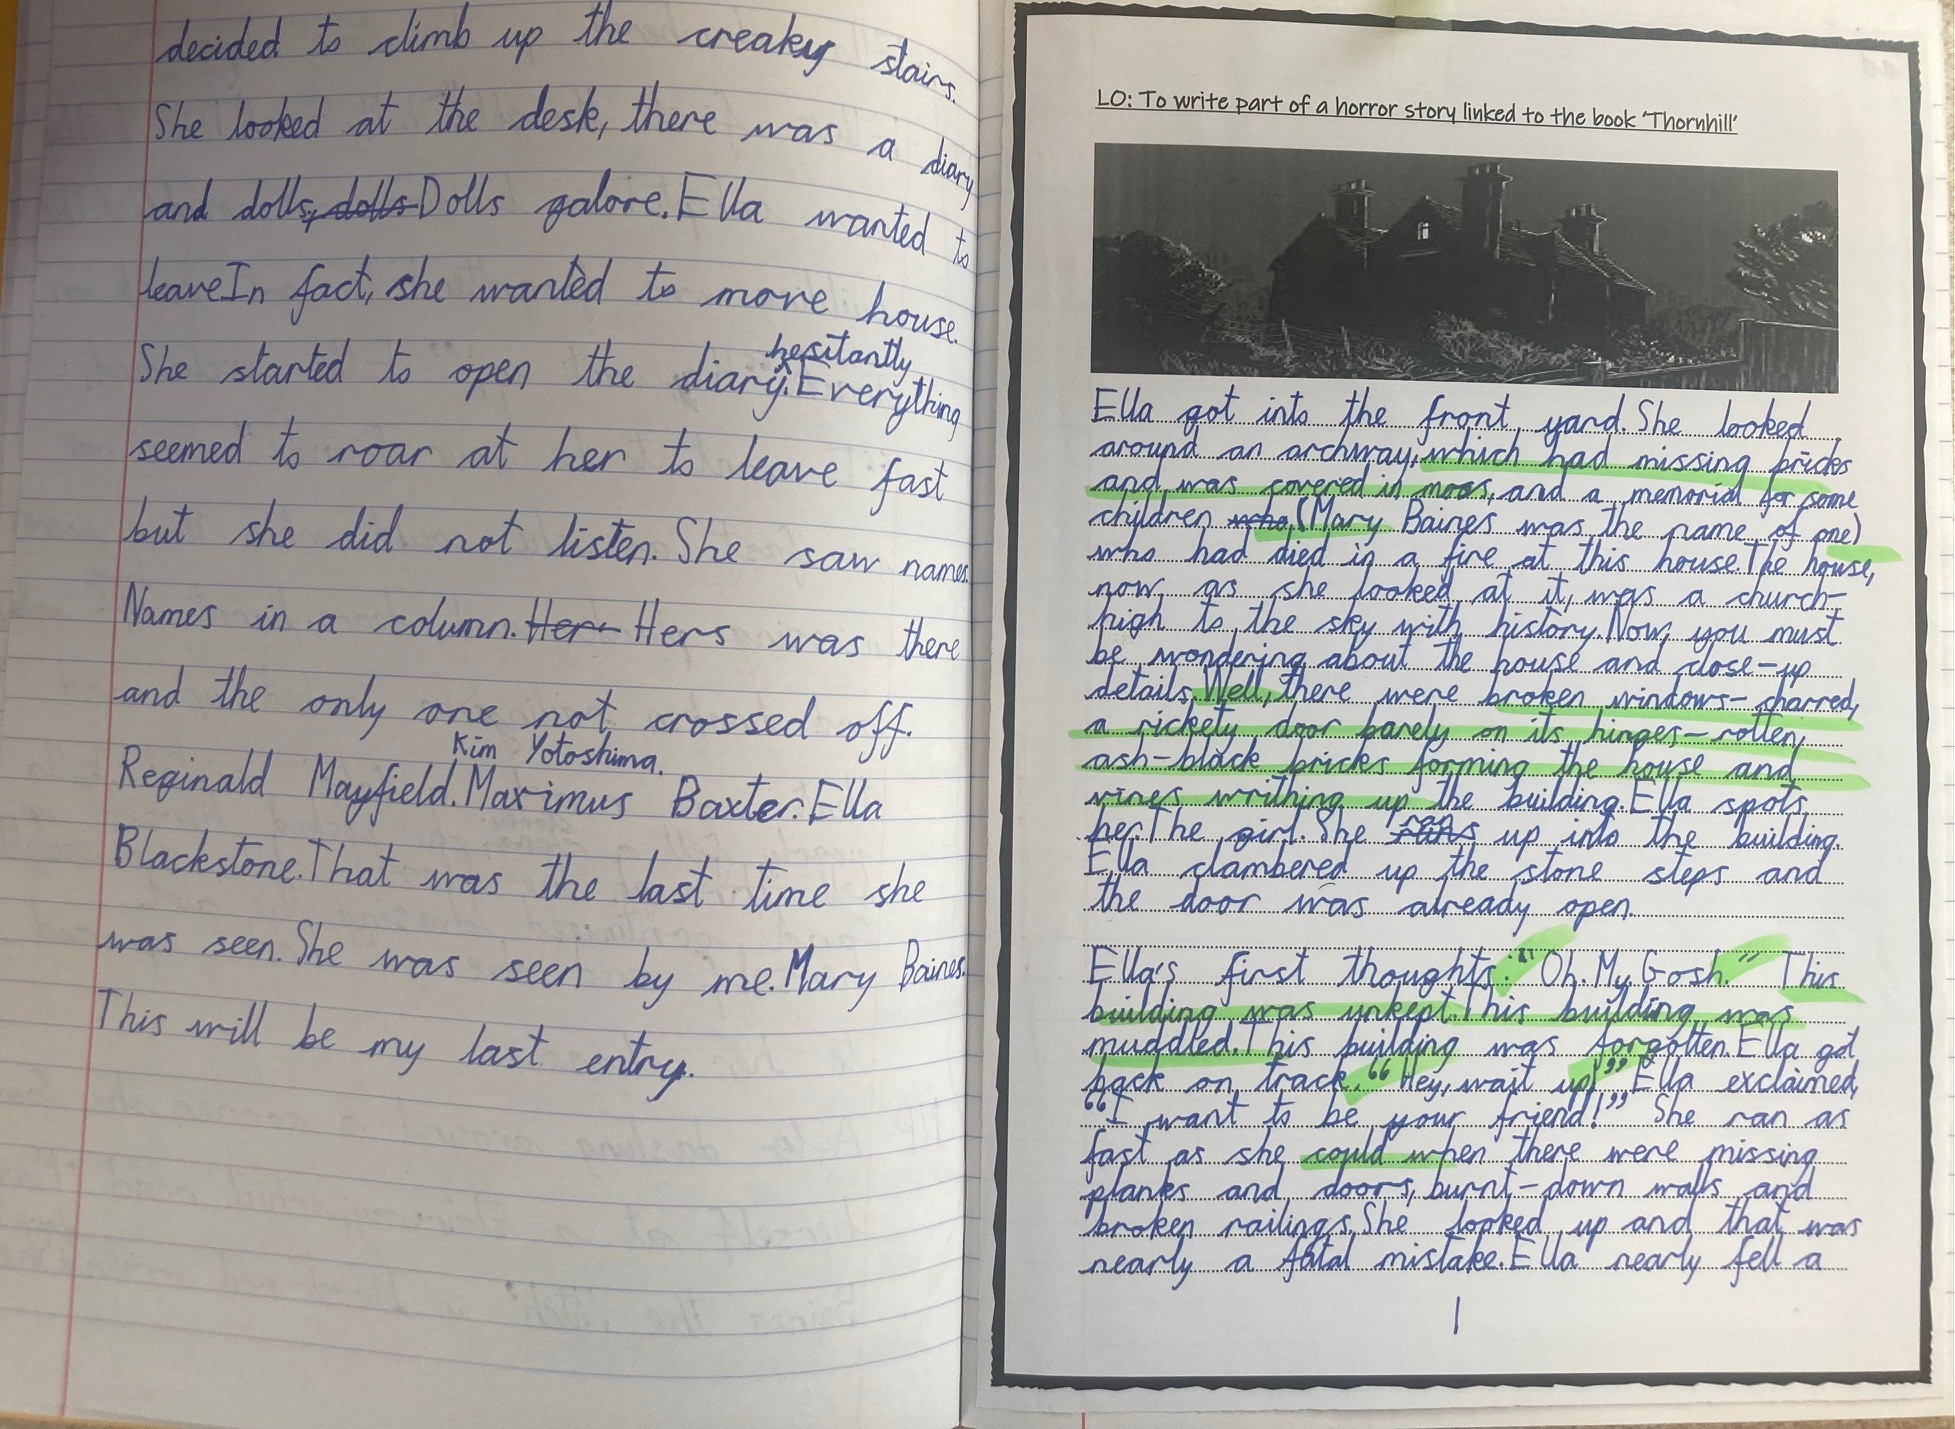 decided to climb up the creaky stairs.
She looked at the desk, there was a diary
and dolls, dolls Dolls galore. Ella wanted to
leave. In fact, she wanted to move house.
hesitantly
She started to open the diary. Everything
seemed to roar at her to leave fast
but she did not listen. She saw names.
Names in a column. Her Hers was there
and the only one not crossed off.
Kim Yotoshima.
Reginald Mayfield. Maximus Baxter. Ella
Blackstone. That was the last time she
was seen. She was seen by me. Mary Baines.
This will be my last entry.
LO: To write part of a horror story linked to the book 'Thornhill'
Ella got into the front yard. She looked
around an archway, which had missing bricks
and was covered in moss, and a memorial for some
children who (Mary Baines was the name of one)
who had died in a fire at this house. The house,
now as she looked at it, was a church-
high to the sky with history. Now, you must
be wondering about the house and close-up
details. Well, there were broken windows-charred,
a rickety door barely on its hinges-rotten,
ash-black bricks forming the house and
vines writhing up the building. Ella spots
her. The girl. She ran up into the building.
Ella clambered up the stone steps and
the door was already open.
Ella's first thoughts: "Oh. My. Gosh." This
building was unkept. This building was
muddled. This building was forgotten. Ella got
back on track. "Hey, wait up!" Ella exclaimed,
"I want to be your friend!" She ran as
fast as she could when there were missing
planks and doors, burnt-down walls and
broken railings. She looked up and that was
nearly a fatal mistake. Ella nearly fell a
1